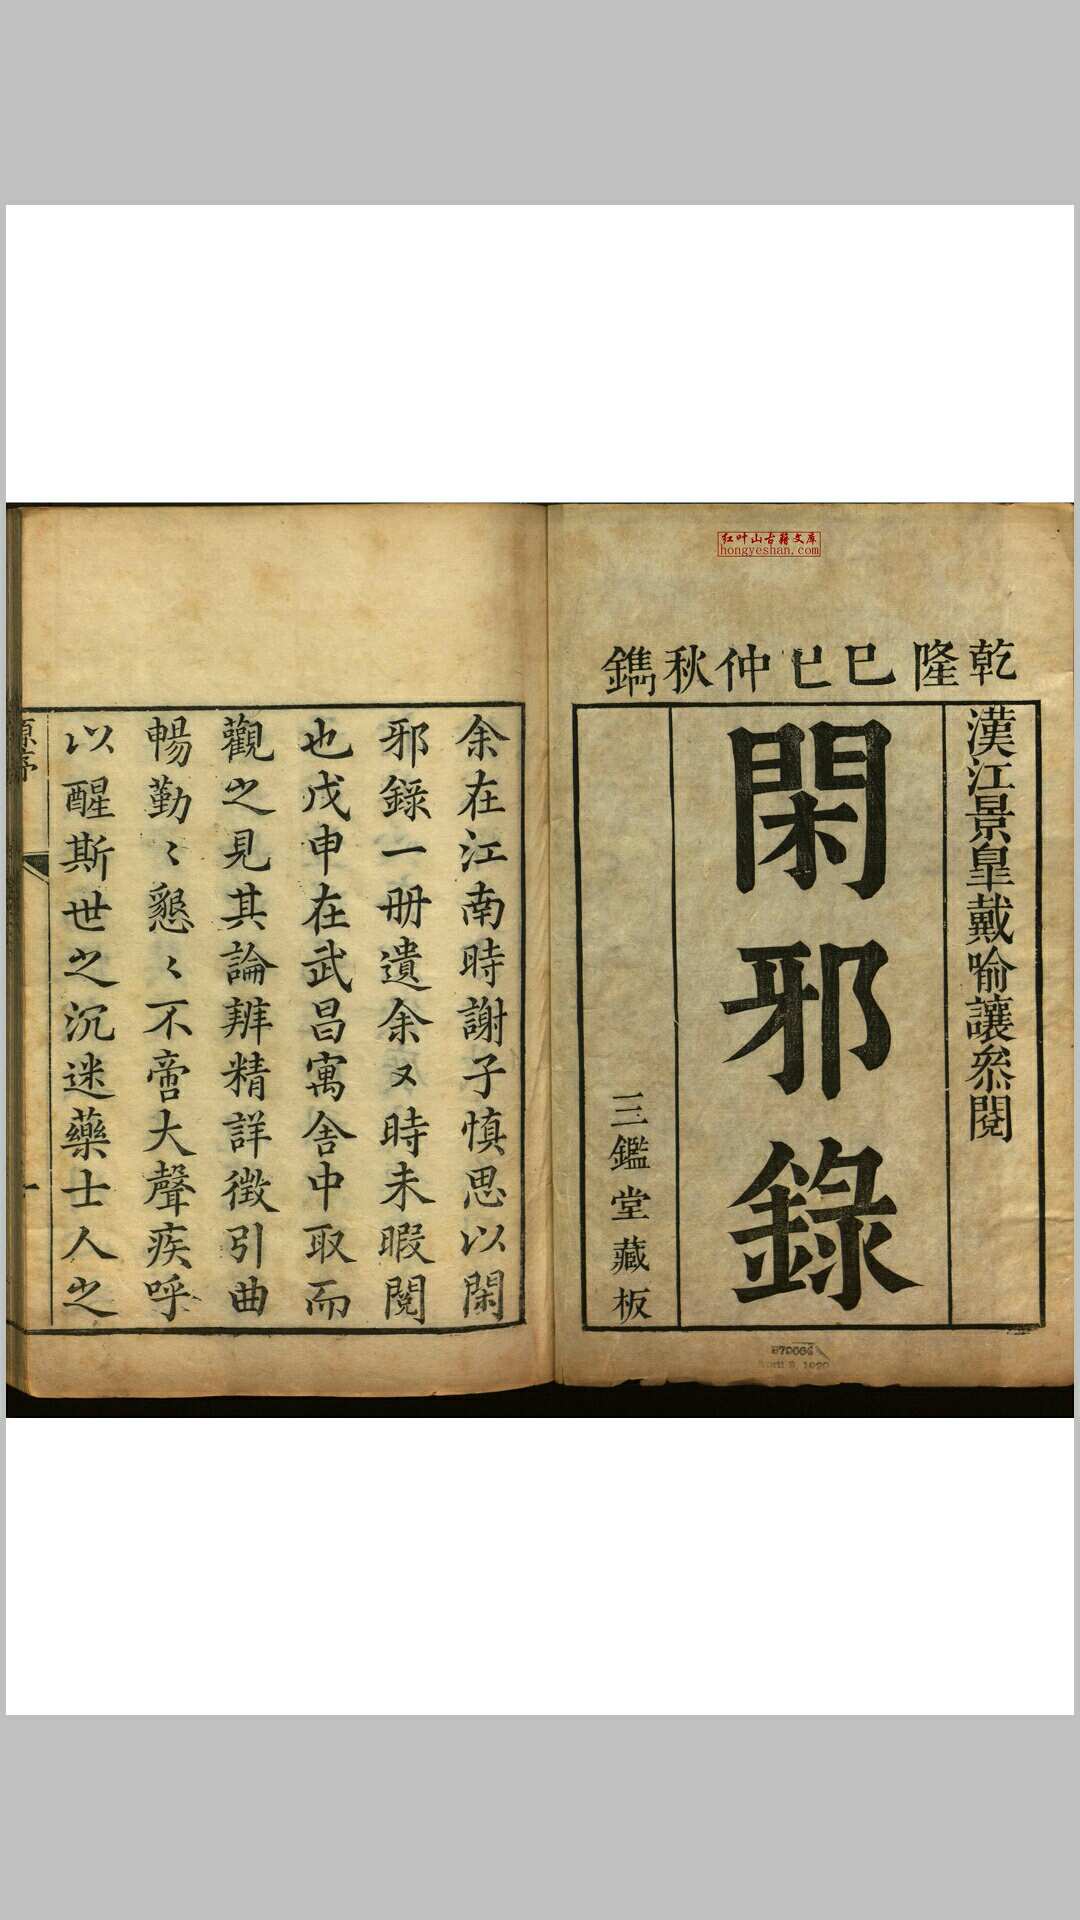 红叶山古籍文库
hongyeshan.com
乾隆己巳仲秋鐫
漢江景皐戴喻讓叅閱
閑邪錄
三鑑堂藏板
余在江南時謝子慎思以閑
邪錄一册遺余又時未暇閱
也戊申在武昌寓舍中取而
觀之見其論辨精詳徵引曲
暢勤〻懇〻不啻大聲疾呼
以醒斯世之沉迷藥士人之
原序
一